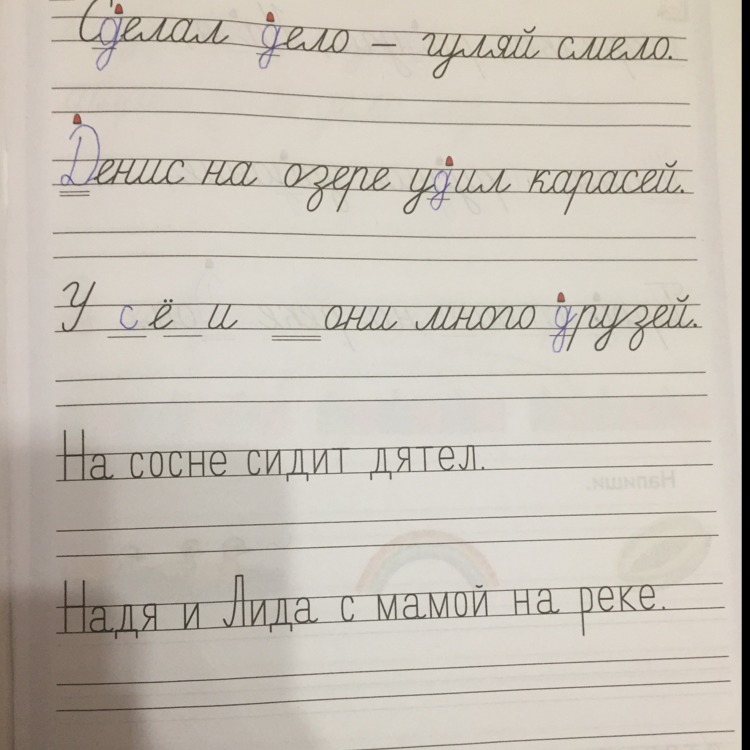 Сделал дело – гуляй смело.
Денис на озере удил карасей.
У сё и они много друзей.
На сосне сидит дятел.
Надя и Лида с мамой на реке.